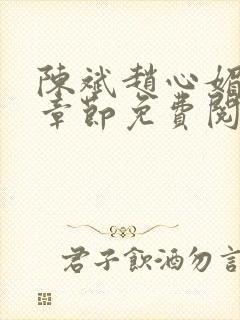 陳斌趙心媚
章節免費閱
君子飲酒勿言